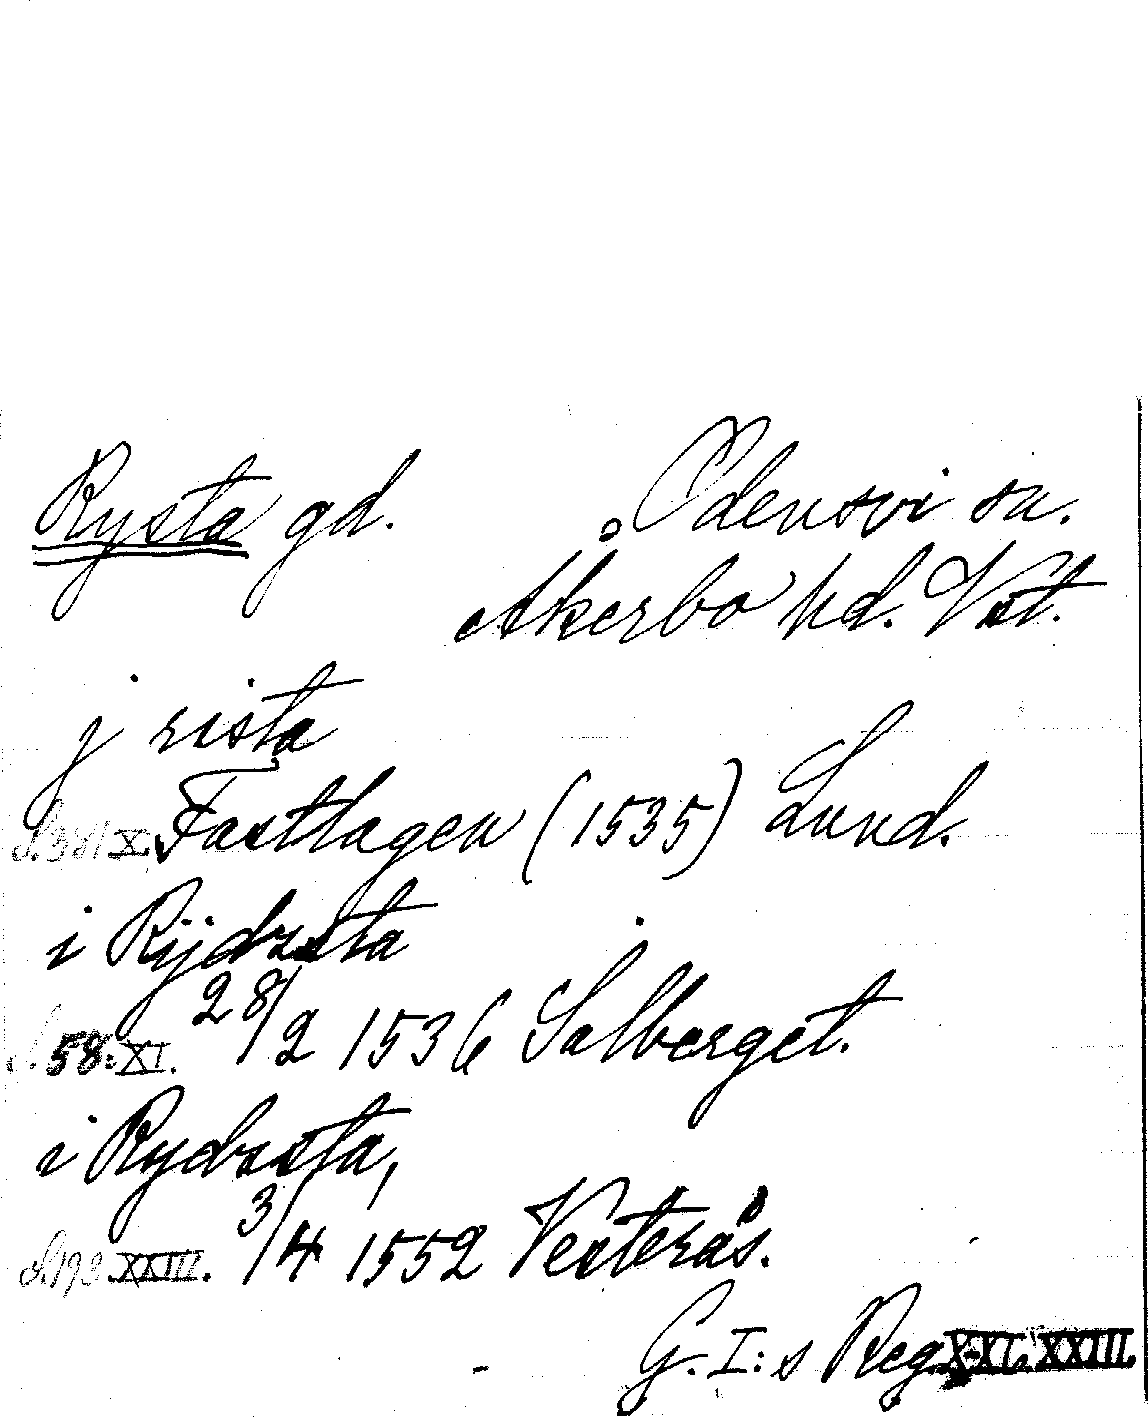 Rysta gd. Odensvi sn.
Åkerbo hd. Vst.
j rista
S. 381 X. Fastlagen (1535) Lund.
i Rijdzsta
S. 58. XI. 28/2 1536 Salberget.
i Rydzsta,
S. 193 XXIII. 3/4 1552 Vesterås.
G. I:s Reg. X-XI, XXIII.